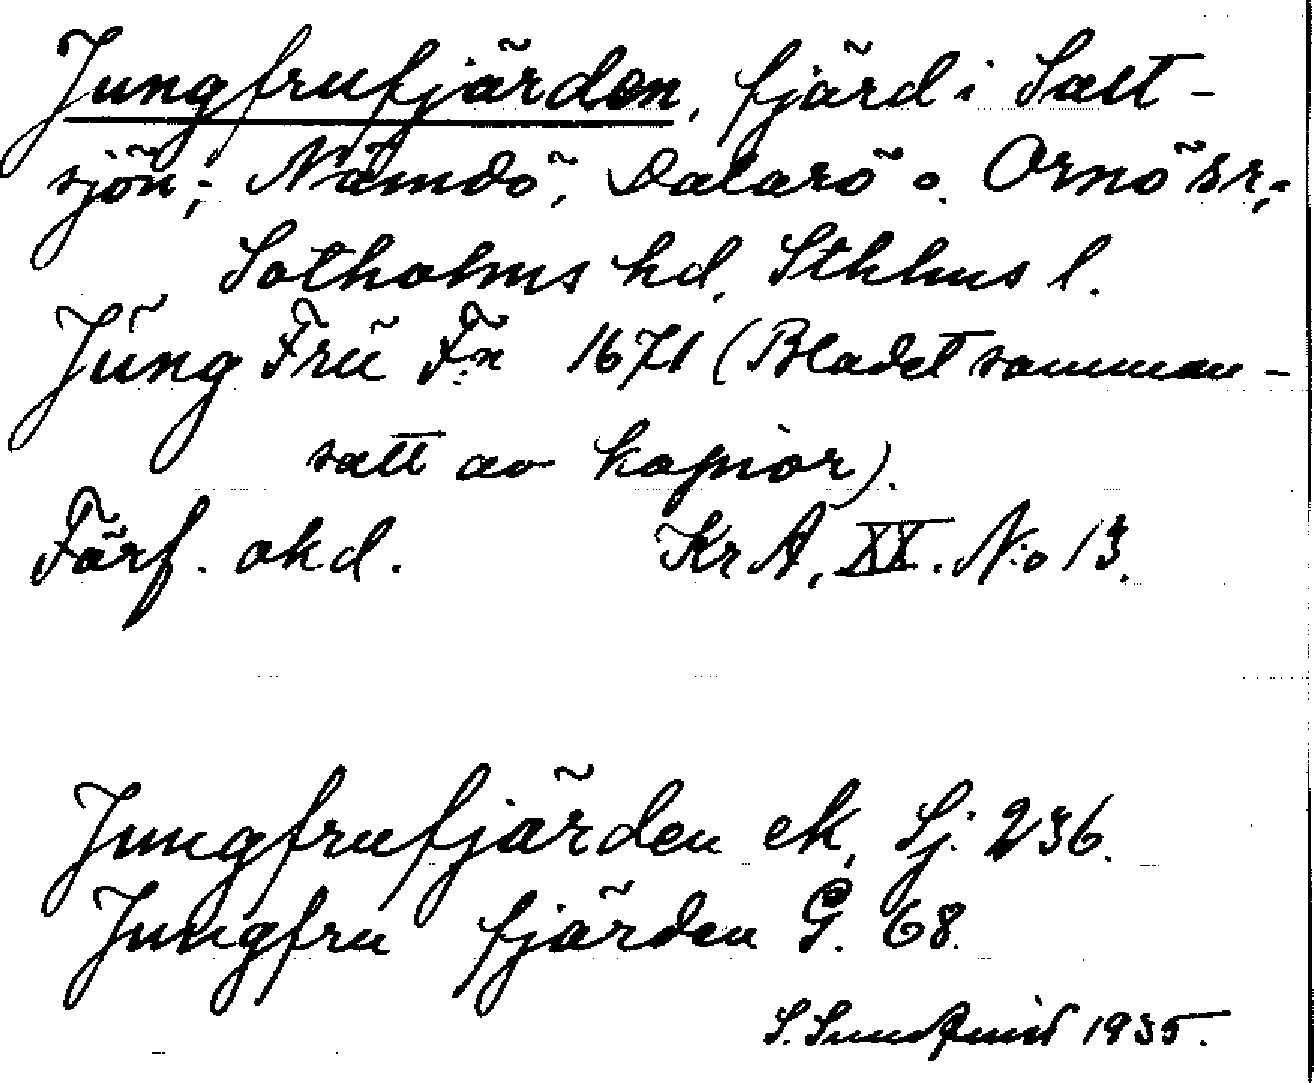 Jungfrufjärden, fjärd i Salt-
sjön; Nämdö, Dalarö o. Ornö sr;
Sotholms hd, Sthlms l.
Jüng Frü F:n 1671 (Bladet samman-
satt av kopior).
Förf. okd. KrA, XX. No 13.
Jungfrufjärden ek, Sj: 236.
Jungfru fjärden G. 68.
S. Sundquist 1935.